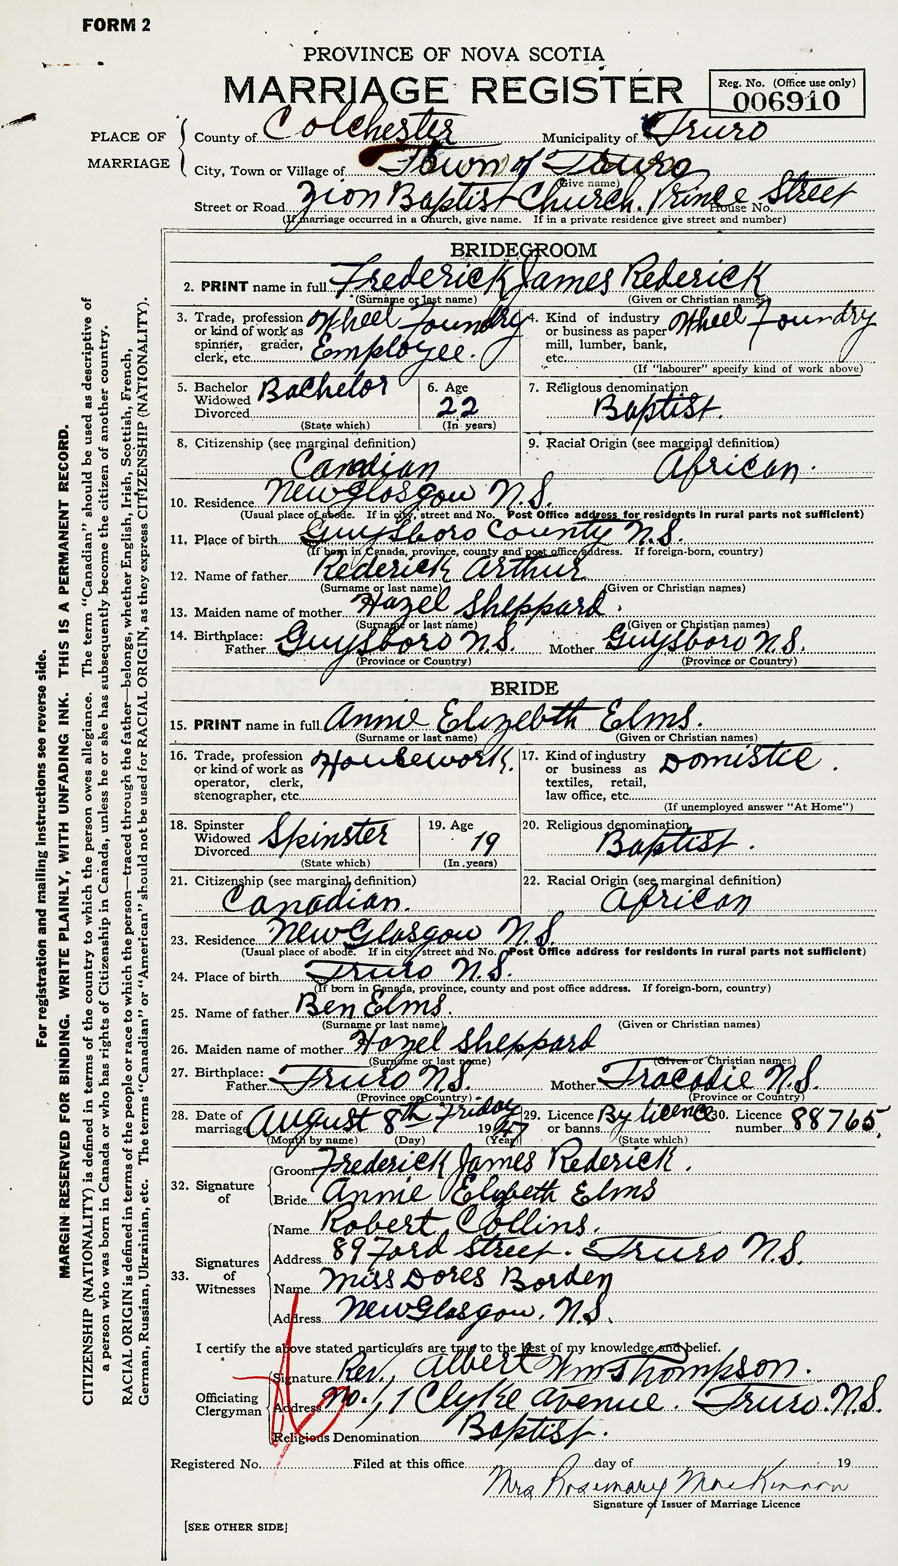 FORM 2
PROVINCE OF NOVA SCOTIA
MARRIAGE REGISTER
Reg. No. (Office use only)
006910
PLACE OF MARRIAGE
County of Colchester Municipality of Truro
City, Town or Village of Town of Truro
(Give name)
Street or Road Zion Baptist Church. Prince Street House No.
(If marriage occurred in a Church, give name. If in a private residence give street and number)
BRIDEGROOM
2. PRINT name in full Frederick James Rederick
(Surname or last name) (Given or Christian names)
3. Trade, profession or kind of work as spinner, grader, clerk, etc. Wheel Foundry Employee.
4. Kind of industry or business as paper mill, lumber, bank, etc. Wheel Foundry
(If "labourer" specify kind of work above)
5. Bachelor Widowed Divorced Bachelor
(State which)
6. Age 22
(In years)
7. Religious denomination Baptist.
8. Citizenship (see marginal definition) Canadian
9. Racial Origin (see marginal definition) African.
10. Residence New Glasgow N.S.
(Usual place of abode. If in city, street and No. Post Office address for residents in rural parts not sufficient)
11. Place of birth Guysboro County N.S.
(If born in Canada, province, county and post office address. If foreign-born, country)
12. Name of father Rederick Arthur
(Surname or last name) (Given or Christian names)
13. Maiden name of mother Hazel Sheppard.
(Surname or last name) (Given or Christian names)
14. Birthplace: Father Guysboro N.S. Mother Guysboro N.S.
(Province or Country) (Province or Country)
BRIDE
15. PRINT name in full Annie Elizebth Elms.
(Surname or last name) (Given or Christian names)
16. Trade, profession or kind of work as operator, clerk, stenographer, etc. Housework.
17. Kind of industry or business as textiles, retail, law office, etc. Domistic.
(If unemployed answer "At Home")
18. Spinster Widowed Divorced Spinster
(State which)
19. Age 19
(In years)
20. Religious denomination Baptist.
21. Citizenship (see marginal definition) Canadian.
22. Racial Origin (see marginal definition) African
23. Residence New Glasgow N.S.
(Usual place of abode. If in city street and No. Post Office address for residents in rural parts not sufficient)
24. Place of birth Truro N.S.
(If born in Canada, province, county and post office address. If foreign-born, country)
25. Name of father Ben Elms.
(Surname or last name) (Given or Christian names)
26. Maiden name of mother Hazel Sheppard
(Surname or last name) (Given or Christian names)
27. Birthplace: Father Truro N.S. Mother Tracadie N.S.
(Province or Country) (Province or Country)
28. Date of marriage August 8th Friday 1947
(Month by name) (Day) (Year)
29. Licence or banns By licence
(State which)
30. Licence number 88765.
32. Signature of
Groom Frederick James Rederick.
Bride Annie Elizbeth Elms
33. Signatures of Witnesses
Name Robert Collins.
Address 89 Ford Street. Truro N.S.
Name Miss Dores Borden
Address New Glasgow. N.S.
I certify the above stated particulars are true to the best of my knowledge and belief.
Officiating Clergyman
Signature Rev., Albert Wm Thompson.
Address No. 1 Clyke Avenue. Truro. N.S.
Religious Denomination Baptist.
Registered No. Filed at this office day of 19
Mrs Rosemary MacKinnon
Signature of Issuer of Marriage Licence
[SEE OTHER SIDE]
For registration and mailing instructions see reverse side.
MARGIN RESERVED FOR BINDING. WRITE PLAINLY, WITH UNFADING INK. THIS IS A PERMANENT RECORD.
CITIZENSHIP (NATIONALITY) is defined in terms of the country to which the person owes allegiance. The term "Canadian" should be used as descriptive of
a person who was born in Canada or who has rights of Citizenship in Canada, unless he or she has subsequently become the citizen of another country.
RACIAL ORIGIN is defined in terms of the people or race to which the person—traced through the father—belongs, whether English, Irish, Scottish, French,
German, Russian, Ukrainian, etc. The terms "Canadian" or "American" should not be used for RACIAL ORIGIN, as they express CITIZENSHIP (NATIONALITY).